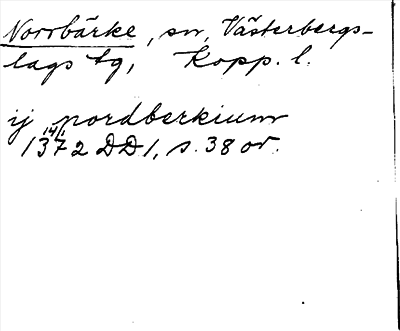 Norrbärke, sn, Västerbergs-
lags tg, Kopp. l.
ij nordberkium
14/1 1372 DD 1, s. 38 or.